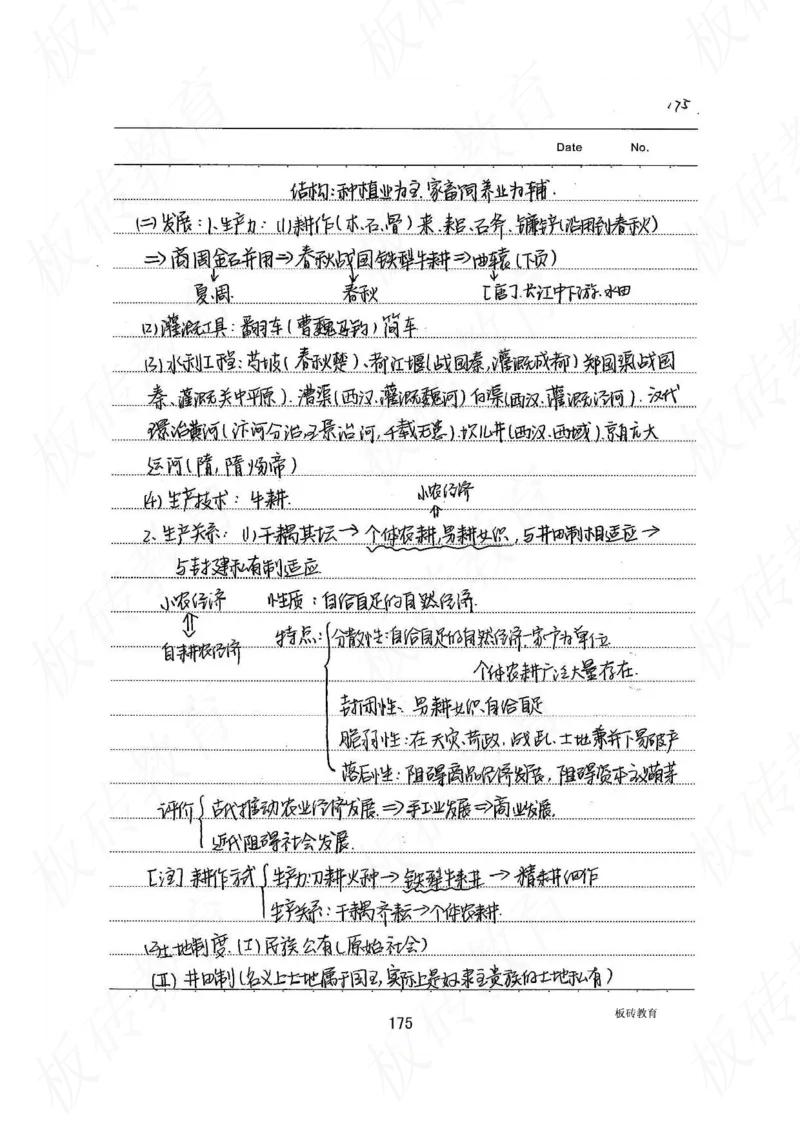 175
Date No.
结构:种植业为主,家畜饲养业为辅.
(二)发展:1、生产力:(1)耕作(木、石、骨)耒、耜、石斧、镰铲(沿用到春秋)
⇒商周金石并用⇒春秋战国铁犁牛耕⇒曲辕(下页)
夏.周 春秋 [唐]长江中下游.水田
(2)灌溉工具:翻车(曹魏马钧)筒车
(3)水利工程:芍坡(春秋楚)、都江堰(战国秦,灌溉成都)郑国渠(战国
秦、灌溉关中平原).漕渠(西汉.灌溉魏河)白渠(西汉.灌溉泾河).汉代
王景治黄河(汴河分治,王景治河,千载无恙).坎儿井(西汉.西域).京杭大
运河(隋,隋炀帝)
(4)生产技术:牛耕. 小农经济
⇑
2、生产关系:(1)千耦其耘→个体农耕,男耕女织,与井田制相适应→
与封建私有制适应
小农经济 性质:自给自足的自然经济.
⇕ 特点:分散性:自给自足的自然经济,一家一户为单位
自耕农经济 个体农耕广泛大量存在.
封闭性、男耕女织.自给自足
脆弱性:在天灾、苛政、战乱、土地兼并下易破产
落后性:阻碍商品经济发展,阻碍资本主义萌芽
评价 古代推动农业经济发展.⇒手工业发展⇒商业发展.
近代阻碍社会发展.
[注]耕作方式 生产力:刀耕火种→铁犁牛耕→精耕细作
生产关系:千耦齐耘→个体农耕.
(2)土地制度.(I)民族公有(原始社会)
(II)井田制(名义上土地属于国王,实际上是奴隶主贵族的土地私有)
175
板砖教育